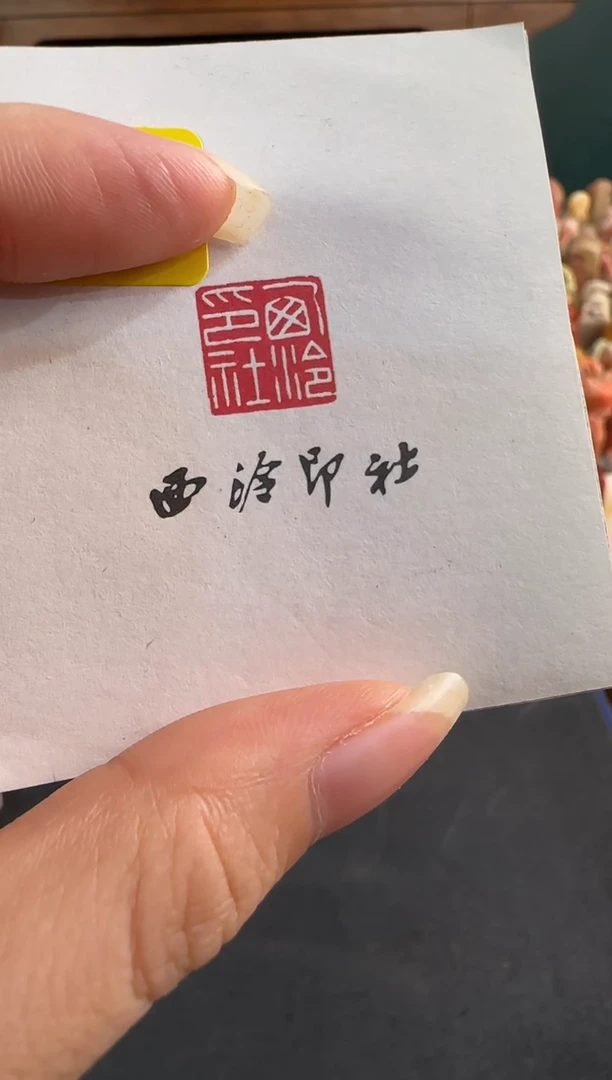 西泠印社
西泠印社